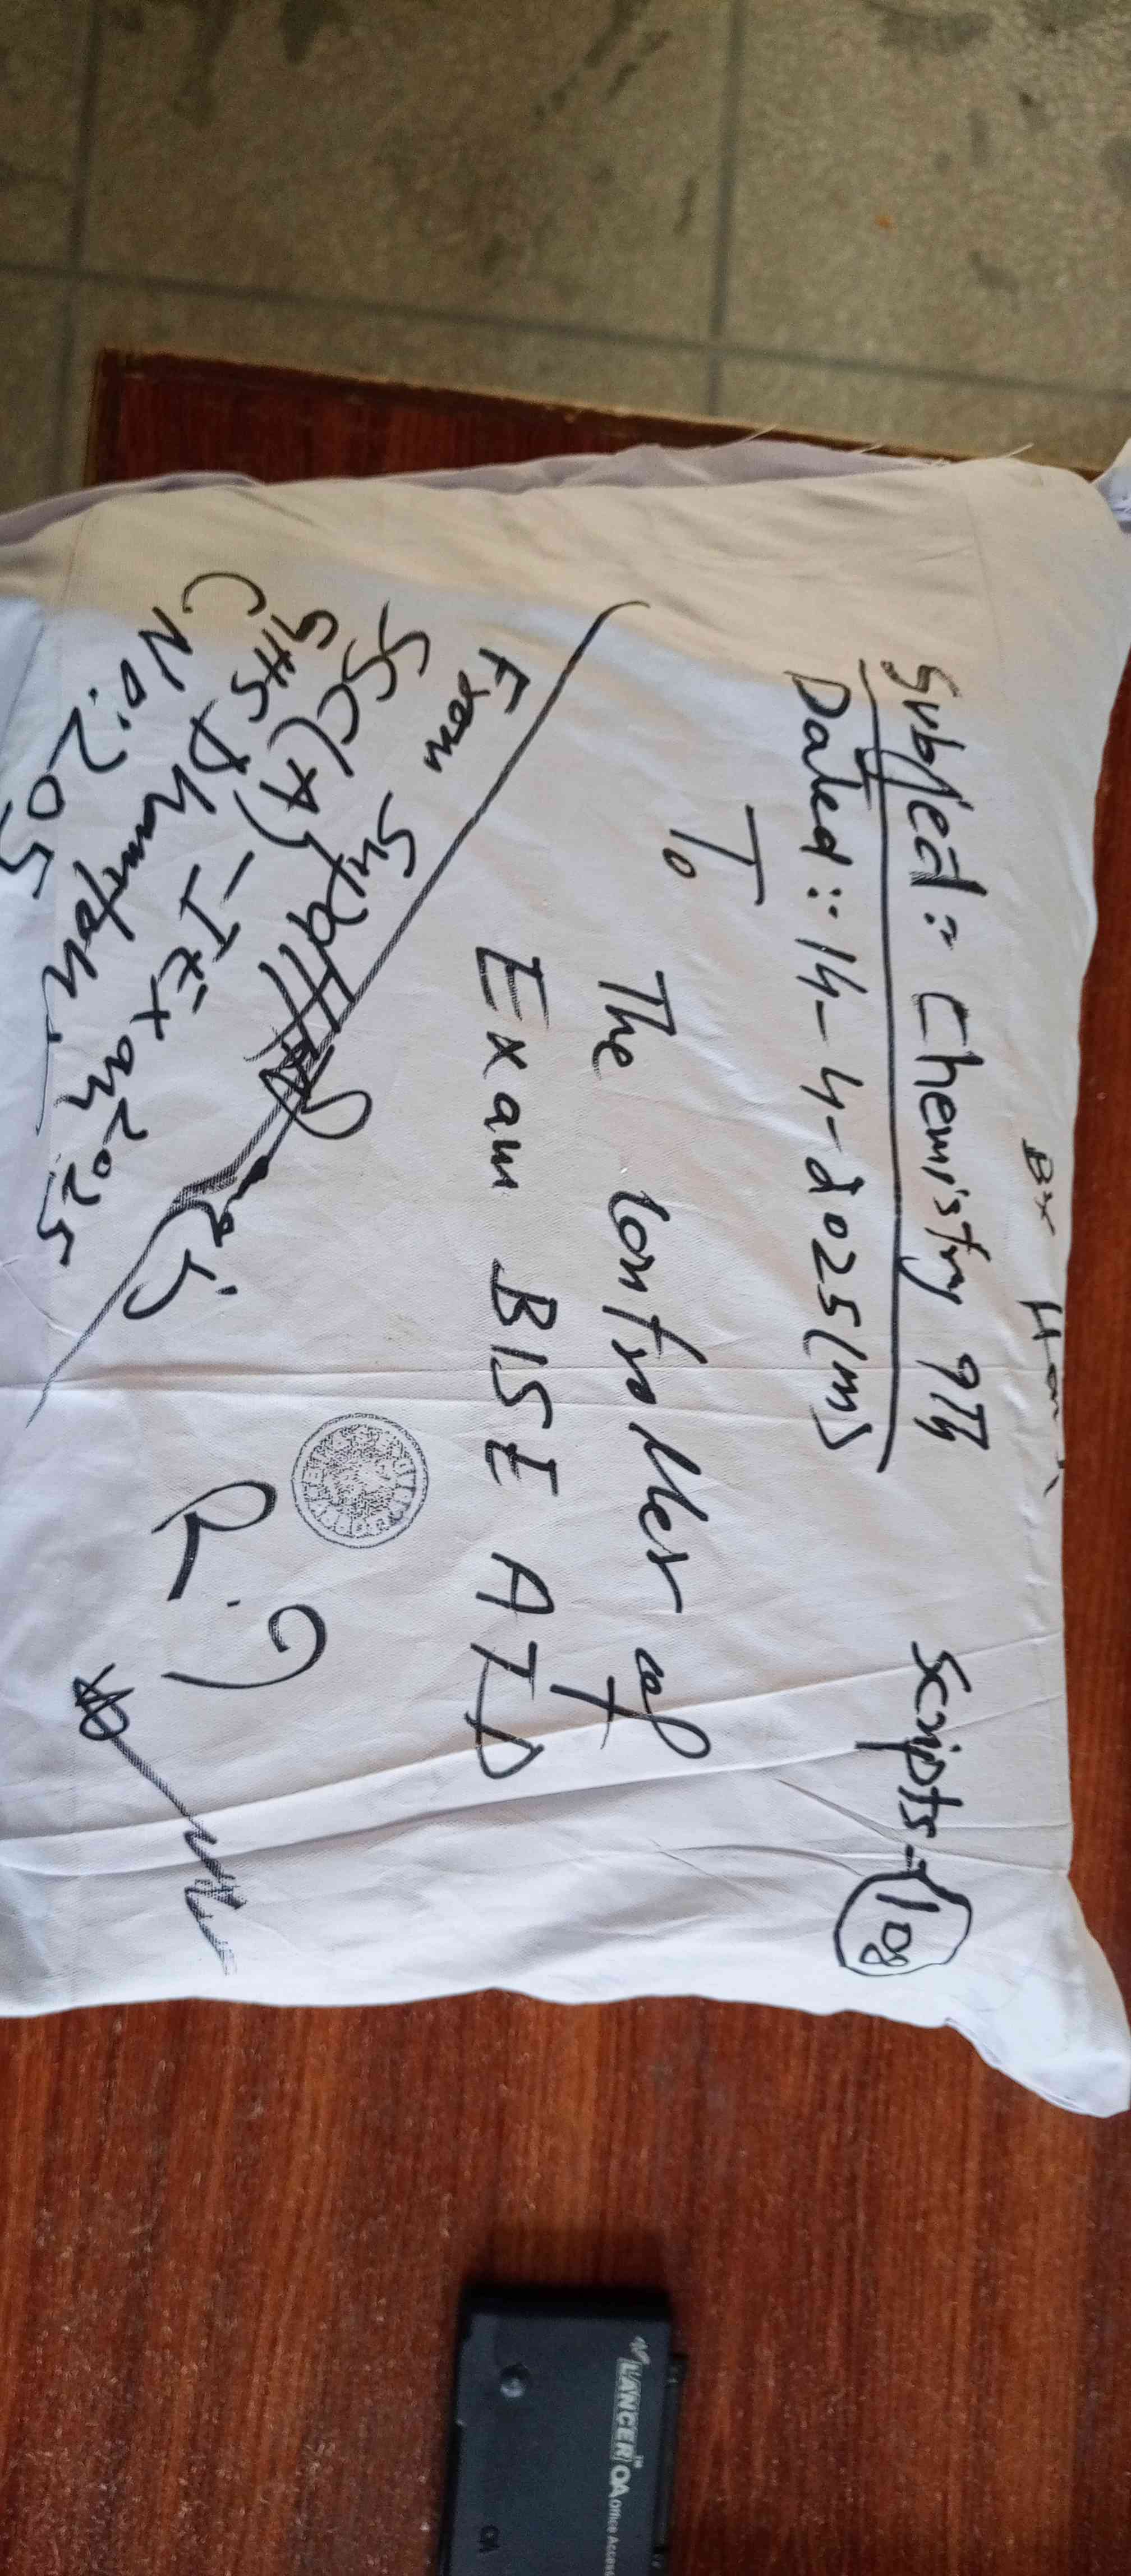 By Han
Subject:- Chemistry 9Th
Scripts- 108
Dated:- 14-4-2025(m)
To
The Controller of
Exam BISE ATD
From Supdtt
SSC(A)-I Exam 2025
GHS Dhamtour
C No: 205
R.9
LANCER OA Office Access
OA